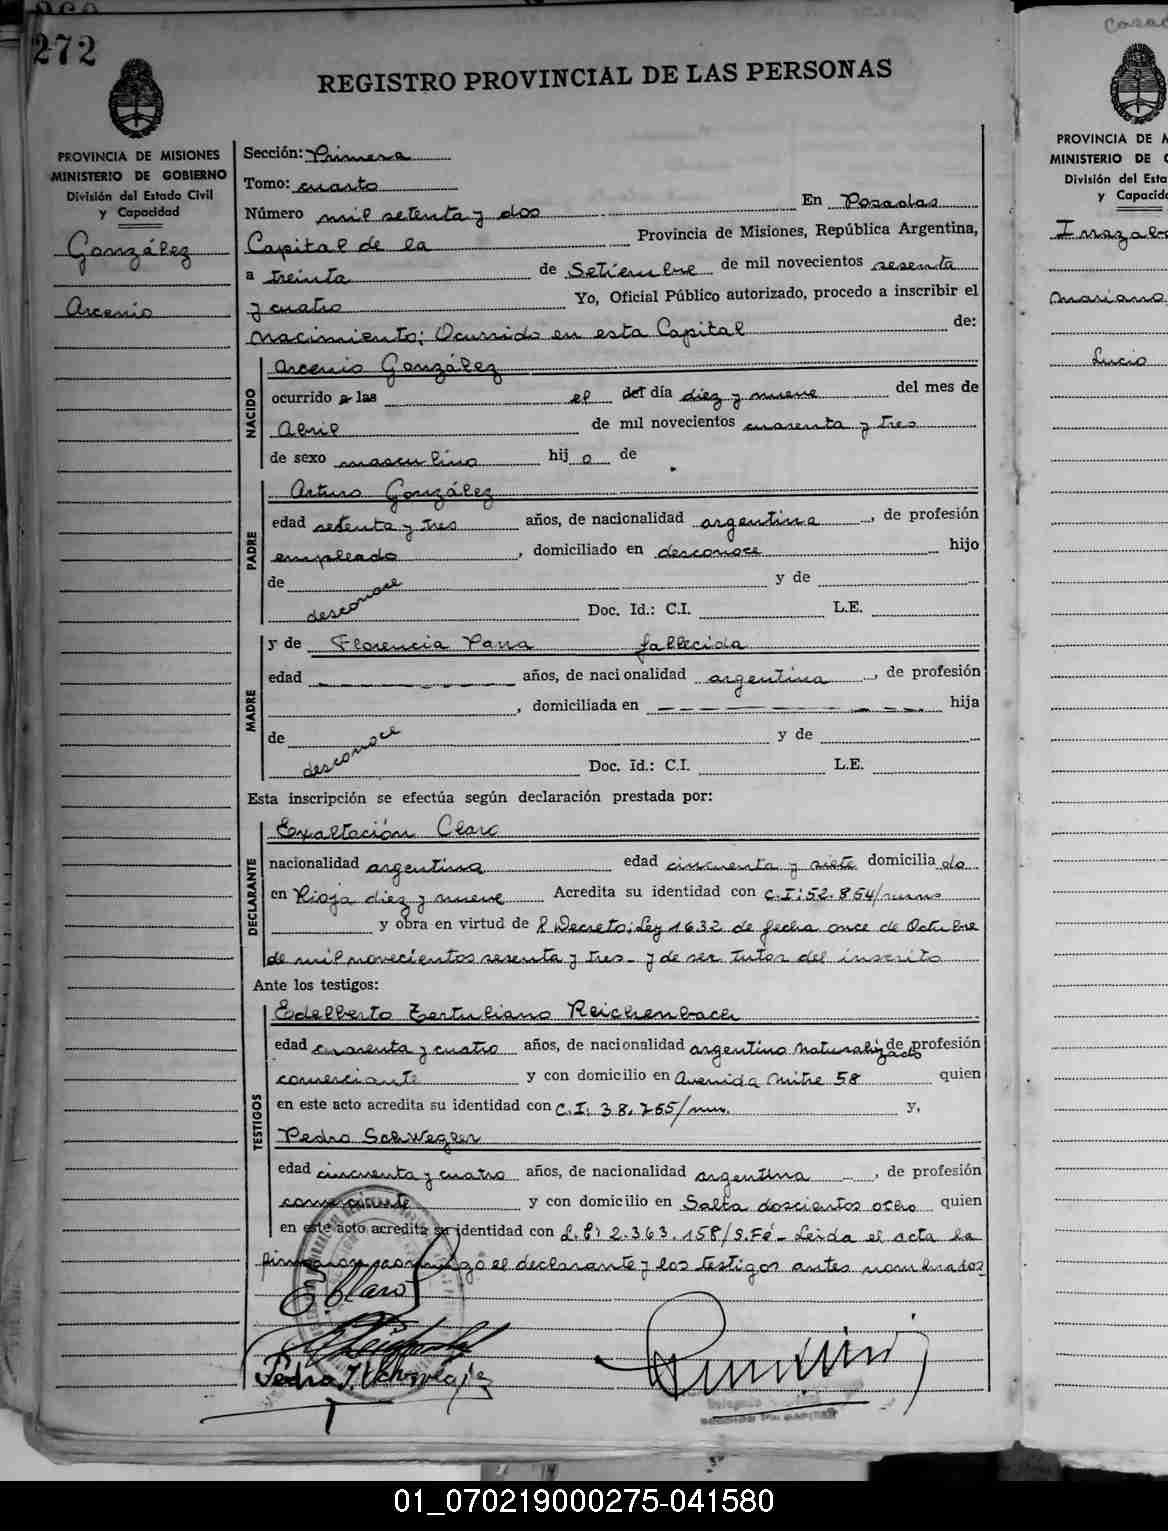 272
REGISTRO PROVINCIAL DE LAS PERSONAS
PROVINCIA DE MISIONES
MINISTERIO DE GOBIERNO
División del Estado Civil
y Capacidad
González
Arcenio
Sección: Primera
Tomo: cuarto
Número mil setenta y dos En Posadas
Capital de la Provincia de Misiones, República Argentina,
a treinta de Setiembre de mil novecientos sesenta
y cuatro Yo, Oficial Público autorizado, procedo a inscribir el
nacimiento: Ocurrido en esta Capital de:
NACIDO
Arcenio González
ocurrido a las el del día diez y nueve del mes de
Abril de mil novecientos cuarenta y tres
de sexo masculino hijo de
PADRE
Arturo González
edad setenta y tres años, de nacionalidad argentina, de profesión
empleado, domiciliado en desconoce hijo
de y de
desconoce Doc. Id.: C.I. L.E.
MADRE
y de Florencia fallecida
edad años, de nacionalidad argentina, de profesión
, domiciliada en hija
de y de
desconoce Doc. Id.: C.I. L.E.
Esta inscripción se efectúa según declaración prestada por:
DECLARANTE
Exaltación Claro
nacionalidad argentina edad cincuenta y siete domiciliado
en Rioja diez y nueve Acredita su identidad con C.I: 52.854/mnes
y obra en virtud de l Decreto: Ley 1632 de fecha once de Octubre
de mil novecientos sesenta y tres - y de ser tutor del inscrito
Ante los testigos:
TESTIGOS
Edelberto Tertuliano Reichenbach
edad cuarenta y cuatro años, de nacionalidad argentino naturalizado de profesión
comerciante y con domicilio en Avenida Mitre 58 quien
en este acto acredita su identidad con C.I: 38.265/mnes. y,
Pedro Schwegler
edad cincuenta y cuatro años, de nacionalidad argentina, de profesión
comerciante y con domicilio en Salta doscientos ocho quien
en este acto acredita su identidad con L.E: 2.363.158/S.Fé - Leida el acta la
firmaron conmigo el declarante y los testigos antes nombrados
E. Claro
Pedro J. Schwegler
PROVINCIA DE M
MINISTERIO DE G
División del Esta
y Capacida
Mariano
Lucio
01_070219000275-041580